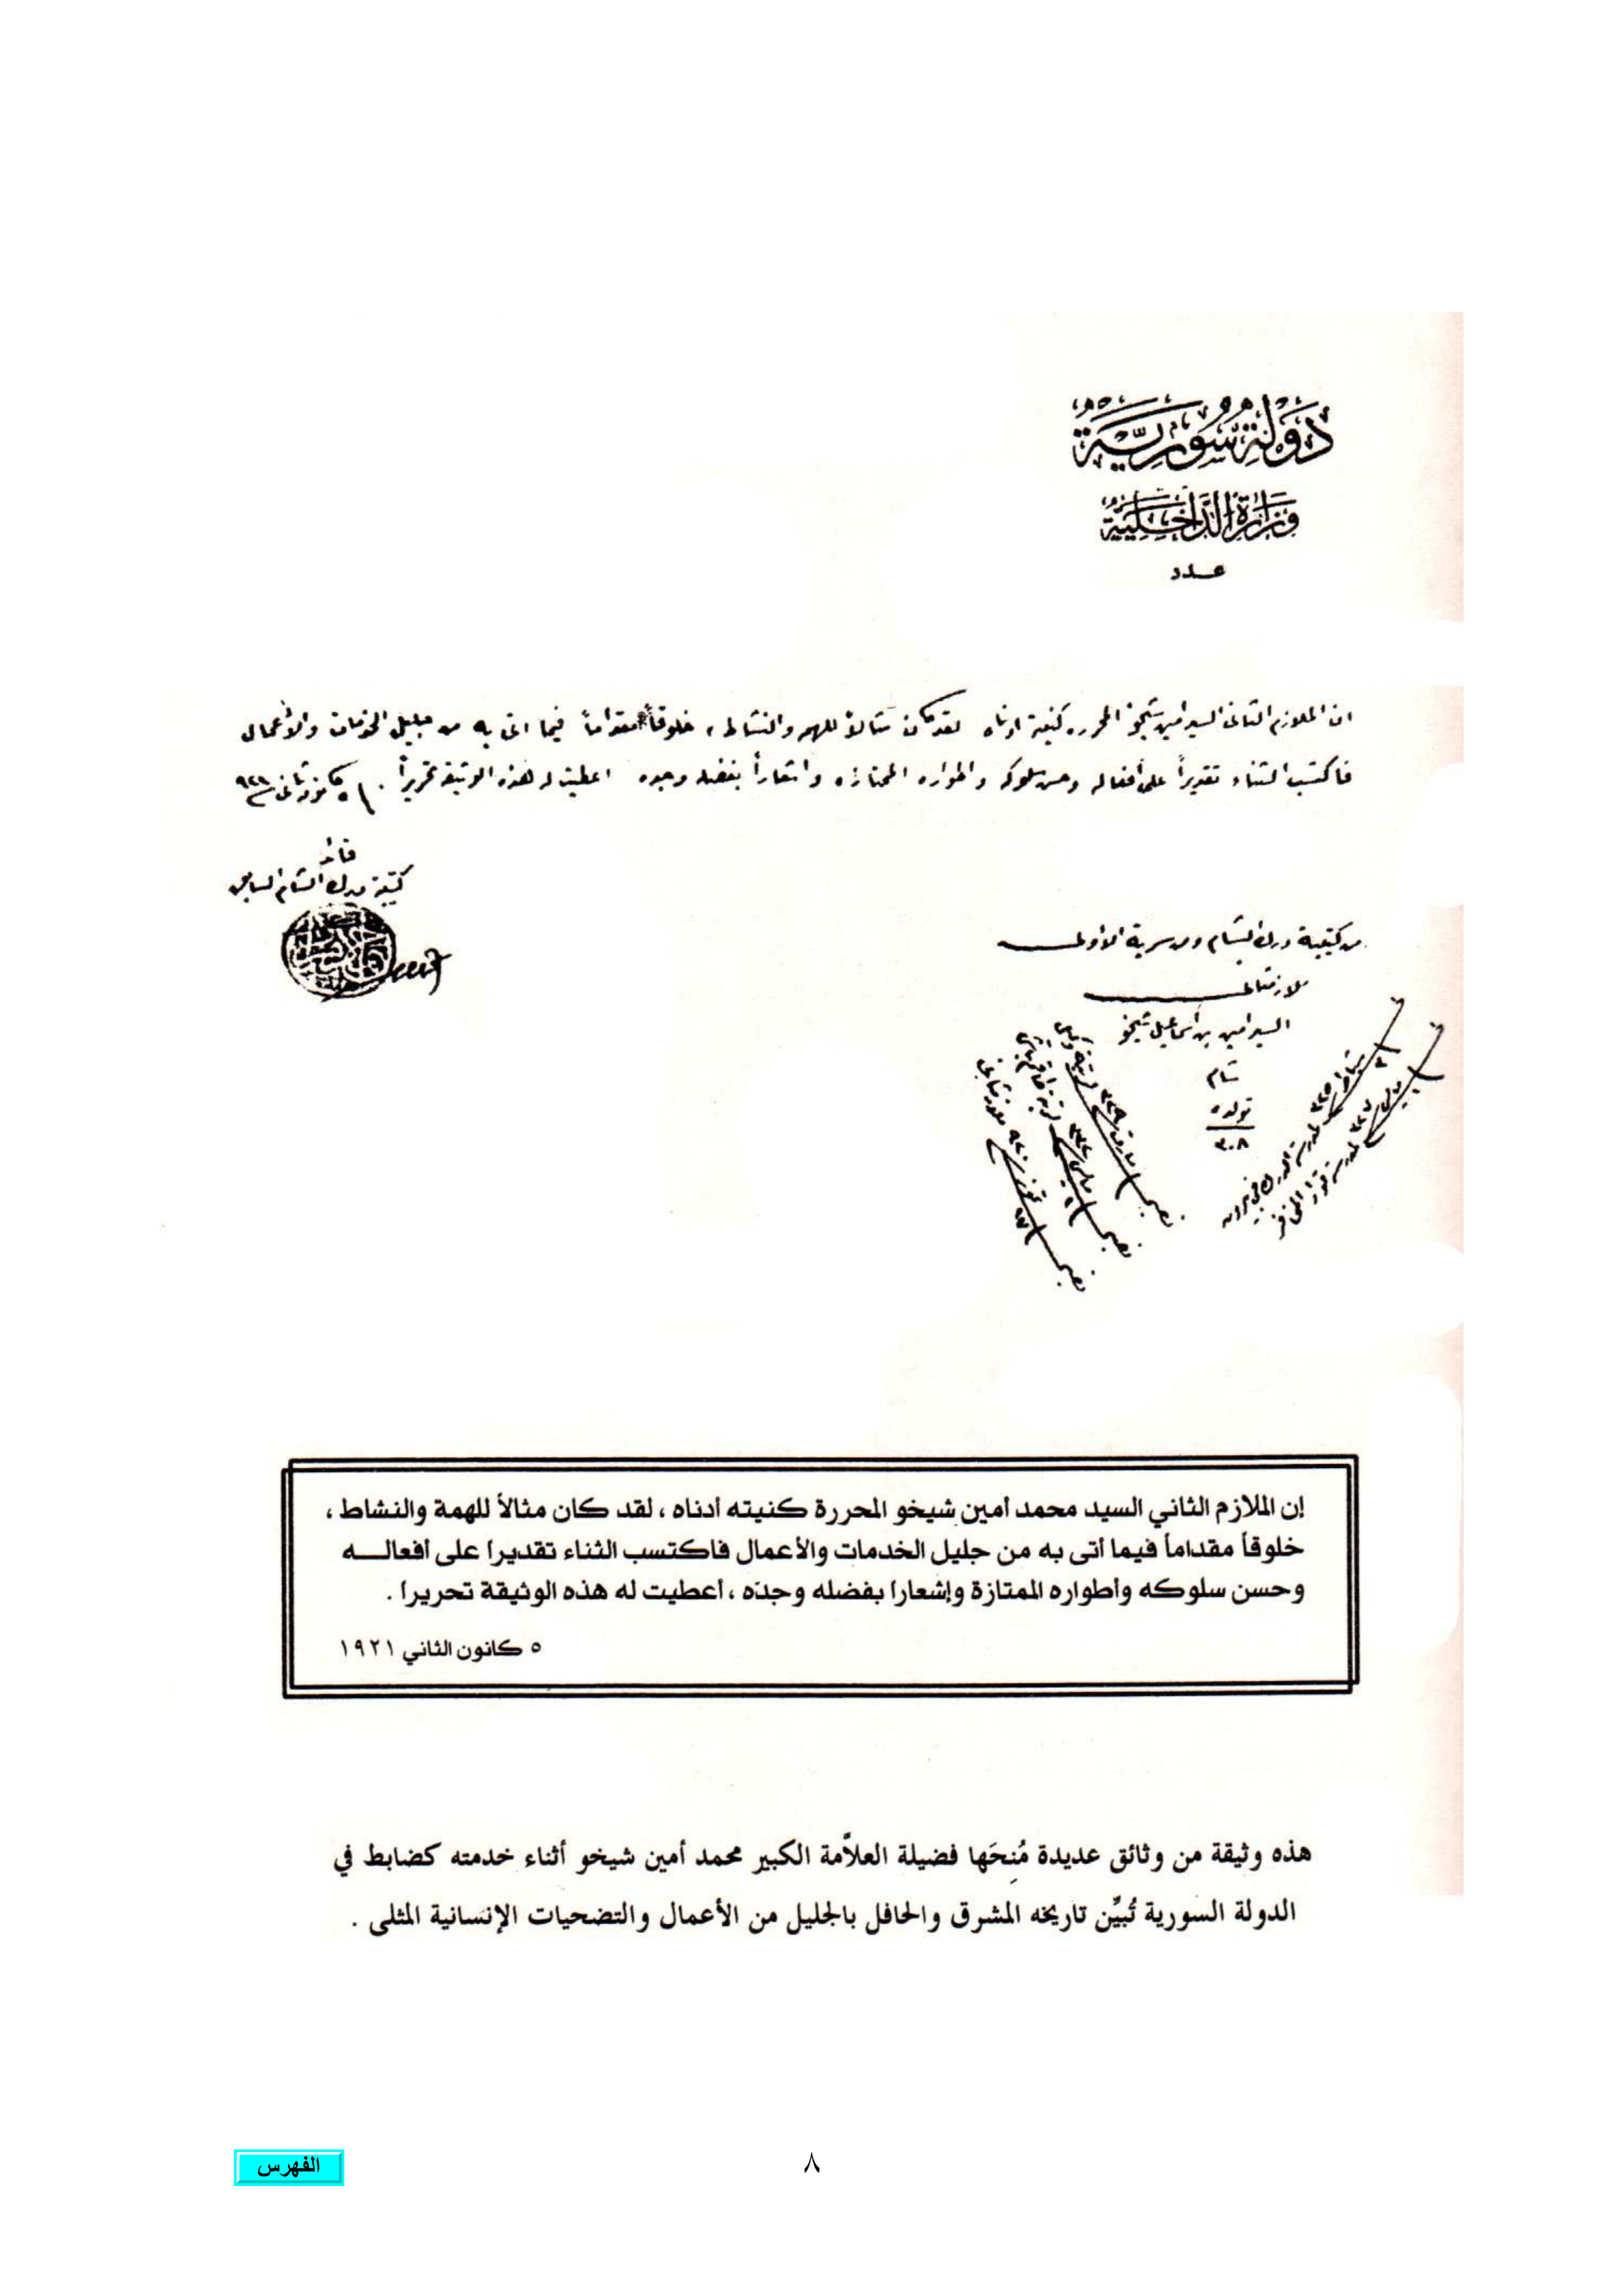 دَوْلَةُ سُورِيَّة
وِزَارَةُ الدَّاخِلِيَّة
عدد
ان الملازم الثاني السيد امين شيخو المحرره كنيته ادناه لقد كان مثالاً للهمه والنشاط، خلوقاً مقداماً فيما اتى به من جليل الخدمات والأعمال
فاكتسب الثناء تقديراً على أفعاله وحسن سلوكه واطواره الممتازه واشعاراً بفضله وجده اعطيت له هذه الوثيقة تحريراً. ٥ كانون ثاني
قائد
كتيبة درك الشام السابق
من كتيبة درك الشام ومن سرية الأولى
ملازم ثاني
السيد امين بن اسماعيل شيخو
شام
تولده
٣٠٨
إن الملازم الثاني السيد محمد أمين شيخو المحررة كنيته أدناه ، لقد كان مثالاً للهمة والنشاط ،
خلوقاً مقداماً فيما أتى به من جليل الخدمات والأعمال فاكتسب الثناء تقديرا على أفعالـــه
وحسن سلوكه وأطواره الممتازة وإشعارا بفضله وجدّه ، أعطيت له هذه الوثيقة تحريرا .
٥ كانون الثاني ١٩٢١
هذه وثيقة من وثائق عديدة مُنِحَها فضيلة العلاَّمة الكبير محمد أمين شيخو أثناء خدمته كضابط في
الدولة السورية تُبيِّن تاريخه المشرق والحافل بالجليل من الأعمال والتضحيات الإنسانية المثلى .
٨
الفهرس